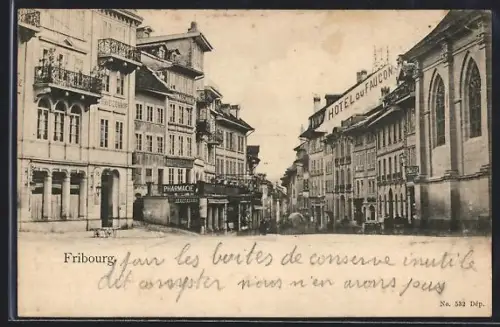 HOTEL DU FAUCON
PHARMACIE
Fribourg.
pour les boites de conserve inutile
de compter nous n'en avons pas
No. 532 Dép.